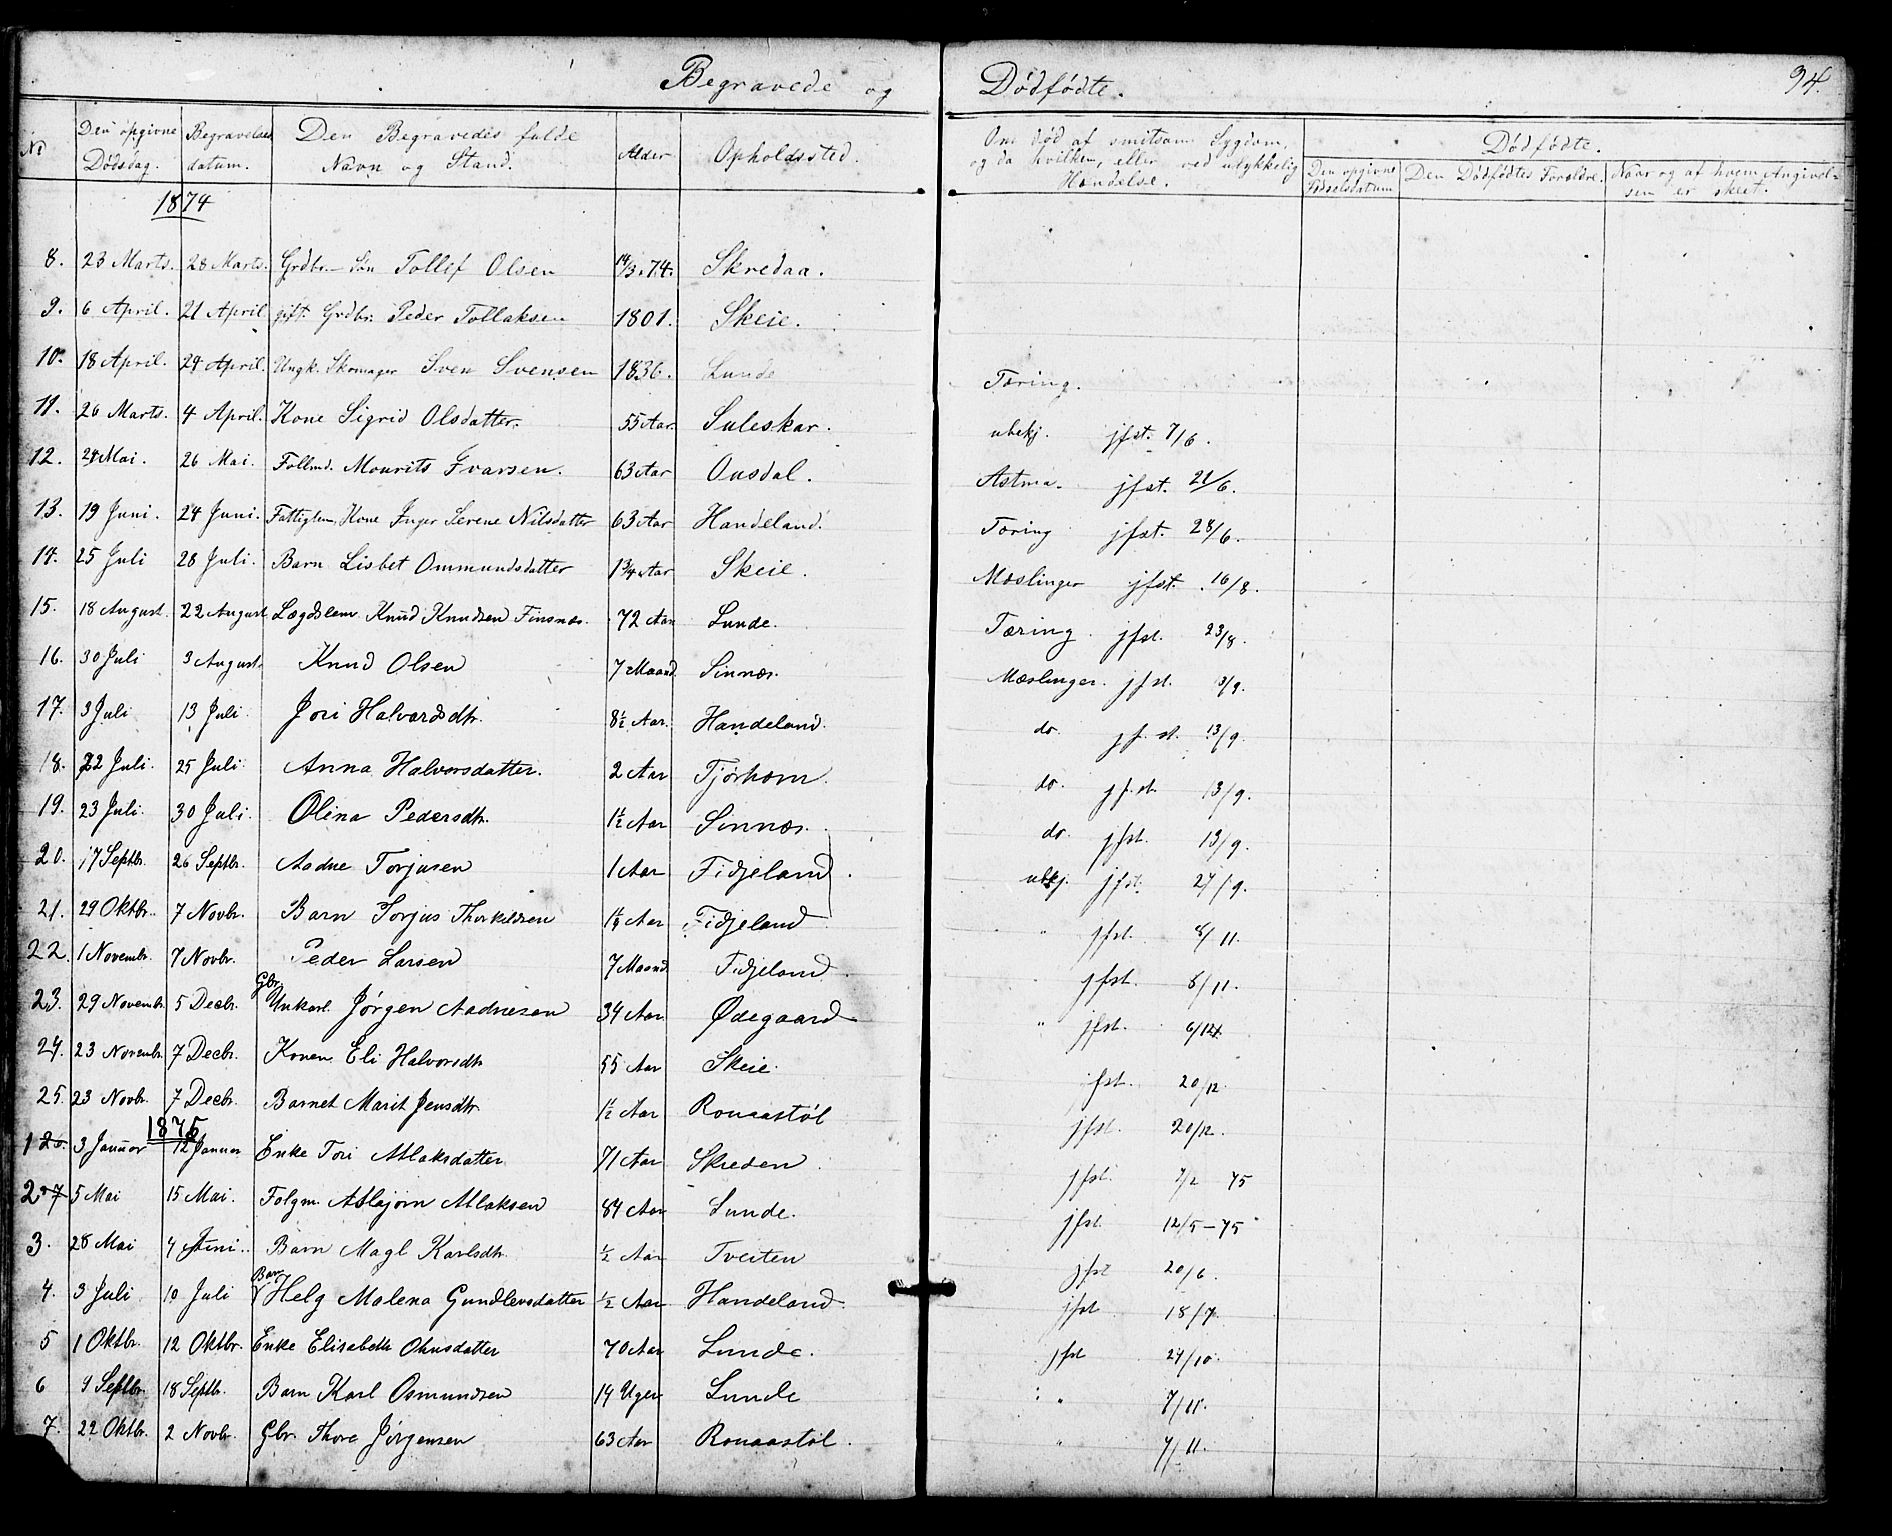 Begravede og Dødfødte. 94.
No Den opgivne Dødsdag. Begravelses datum. Den Begravedes fulde Navn og Stand. Alder Opholdssted. Om død af smitsom Sygdom, og da hvilken, eller ved ulykkelig Hændelse. Dødfødte. Den opgivne Fødselsdatum Den Dødfødtes Forældre. Naar og af hvem Angivelsen er skeet.
1874
8. 23 Marts. 28 Marts. Grdbr. Søn Tollef Olsen 14/3.74. Skredaa.
9. 6 April. 21 April gift. Grdbr. Peder Tollaksen 1801. Skeie.
10. 18 April. 24 April. Ungk. Skomager Sven Svensen 1836. Lunde Tæring.
11. 26 Marts. 4 April. Kone Sigrid Olsdatter. 55 Aar. Suleskar. ubekj. jfst. 7/6.
12. 24 Mai. 26 Mai. Follmd. Mourits Ivarsen. 63 Aar Ousdal. Astma. jfst. 21/6.
13. 19 Juni. 24 Juni. Fattiglem, Kone Inger Serene Nilsdatter 63 Aar Handeland. Tæring jfst. 28/6.
14. 25 Juli 28 Juli. Barn Lisbet Ommundsdatter 1 3/4 Aar Skeie. Mæslinger jfst. 16/8.
15. 18 August. 22 August Lægdslem Knud Knudsen Finsnæs. 72 Aar Lunde. Tæring. jfst. 23/8.
16. 30 Juli 3 August. Knud Olsen 7 Maand Sinnæs. Mæslinger. jfst. 3/9.
17. 3 Juli 13 Juli. Jori Halvardsdtr. 8 1/2 Aar. Handeland. do. jf. st. 13/9.
18. 22 Juli. 25 Juli. Anna Halvorsdatter. 2 Aar Tjørhom. do. jfst. 13/9.
19. 23 Juli. 30 Juli. Olina Pedersdtr. 1 1/2 Aar Sinnæs. do. jfst. 13/9.
20. 17 Septbr. 26 Septbr. Aadne Torjusen 1 Aar Fidjeland. ubkj. jfst. 27/9.
21. 29 Oktbr. 7 Novbr. Barn Torjus Thorkildsen 1 1/4 Aar Fidjeland " jfst. 8/11.
22. 1 Novembr. 7 Novbr. Peder Larsen 7 Maand. Fidjeland. jfst. 8/11.
23. 29 Novembr 5 Decbr. Gbr. Unkarl. Jørgen Aadnesen 34 Aar Ødegaard " jfst. 6/12.
24. 23 Novembr. 7 Decbr. Konen Eli Halvorsdtr 55 Aar Skeie. jfst. 20/12.
25. 23 Novbr. 7 Decbr. Barnet Marit Jensdtr 1 1/2 Aar Ronaastøl jfst. 20/12.
1875
1 26. 3 Januar 12 Januar Enke Tori Atlaksdatter 71 Aar Skreden jfst. 7/2 75
2. 27 5 Mai 15 Mai. Folgm. Asbjørn Atlaksen 84 Aar Lunde. jfst 12/5-75
3. 28 Mai 4 Juni. Barn Magl Karlsdtr. 1/2 Aar Tveiten jfst 20/6.
4. 3 Juli 10 Juli Barn Helg Malena Gundleivsdatter 1/2 Aar Handeland jfst 18/7.
5 1 Oktbr. 12 Oktbr. Enke Elisabeth Ohnsdatter 70 Aar Lunde. jfst 24/10.
6 9 Septbr. 18 Septbr. Barn Karl Osmundsen 14 Uger Lunde " 7/11.
7. 22 Oktbr. 2 Novbr. Gbr. Thore Jørgensen 63 Aar Ronaastøl. " 7/11.